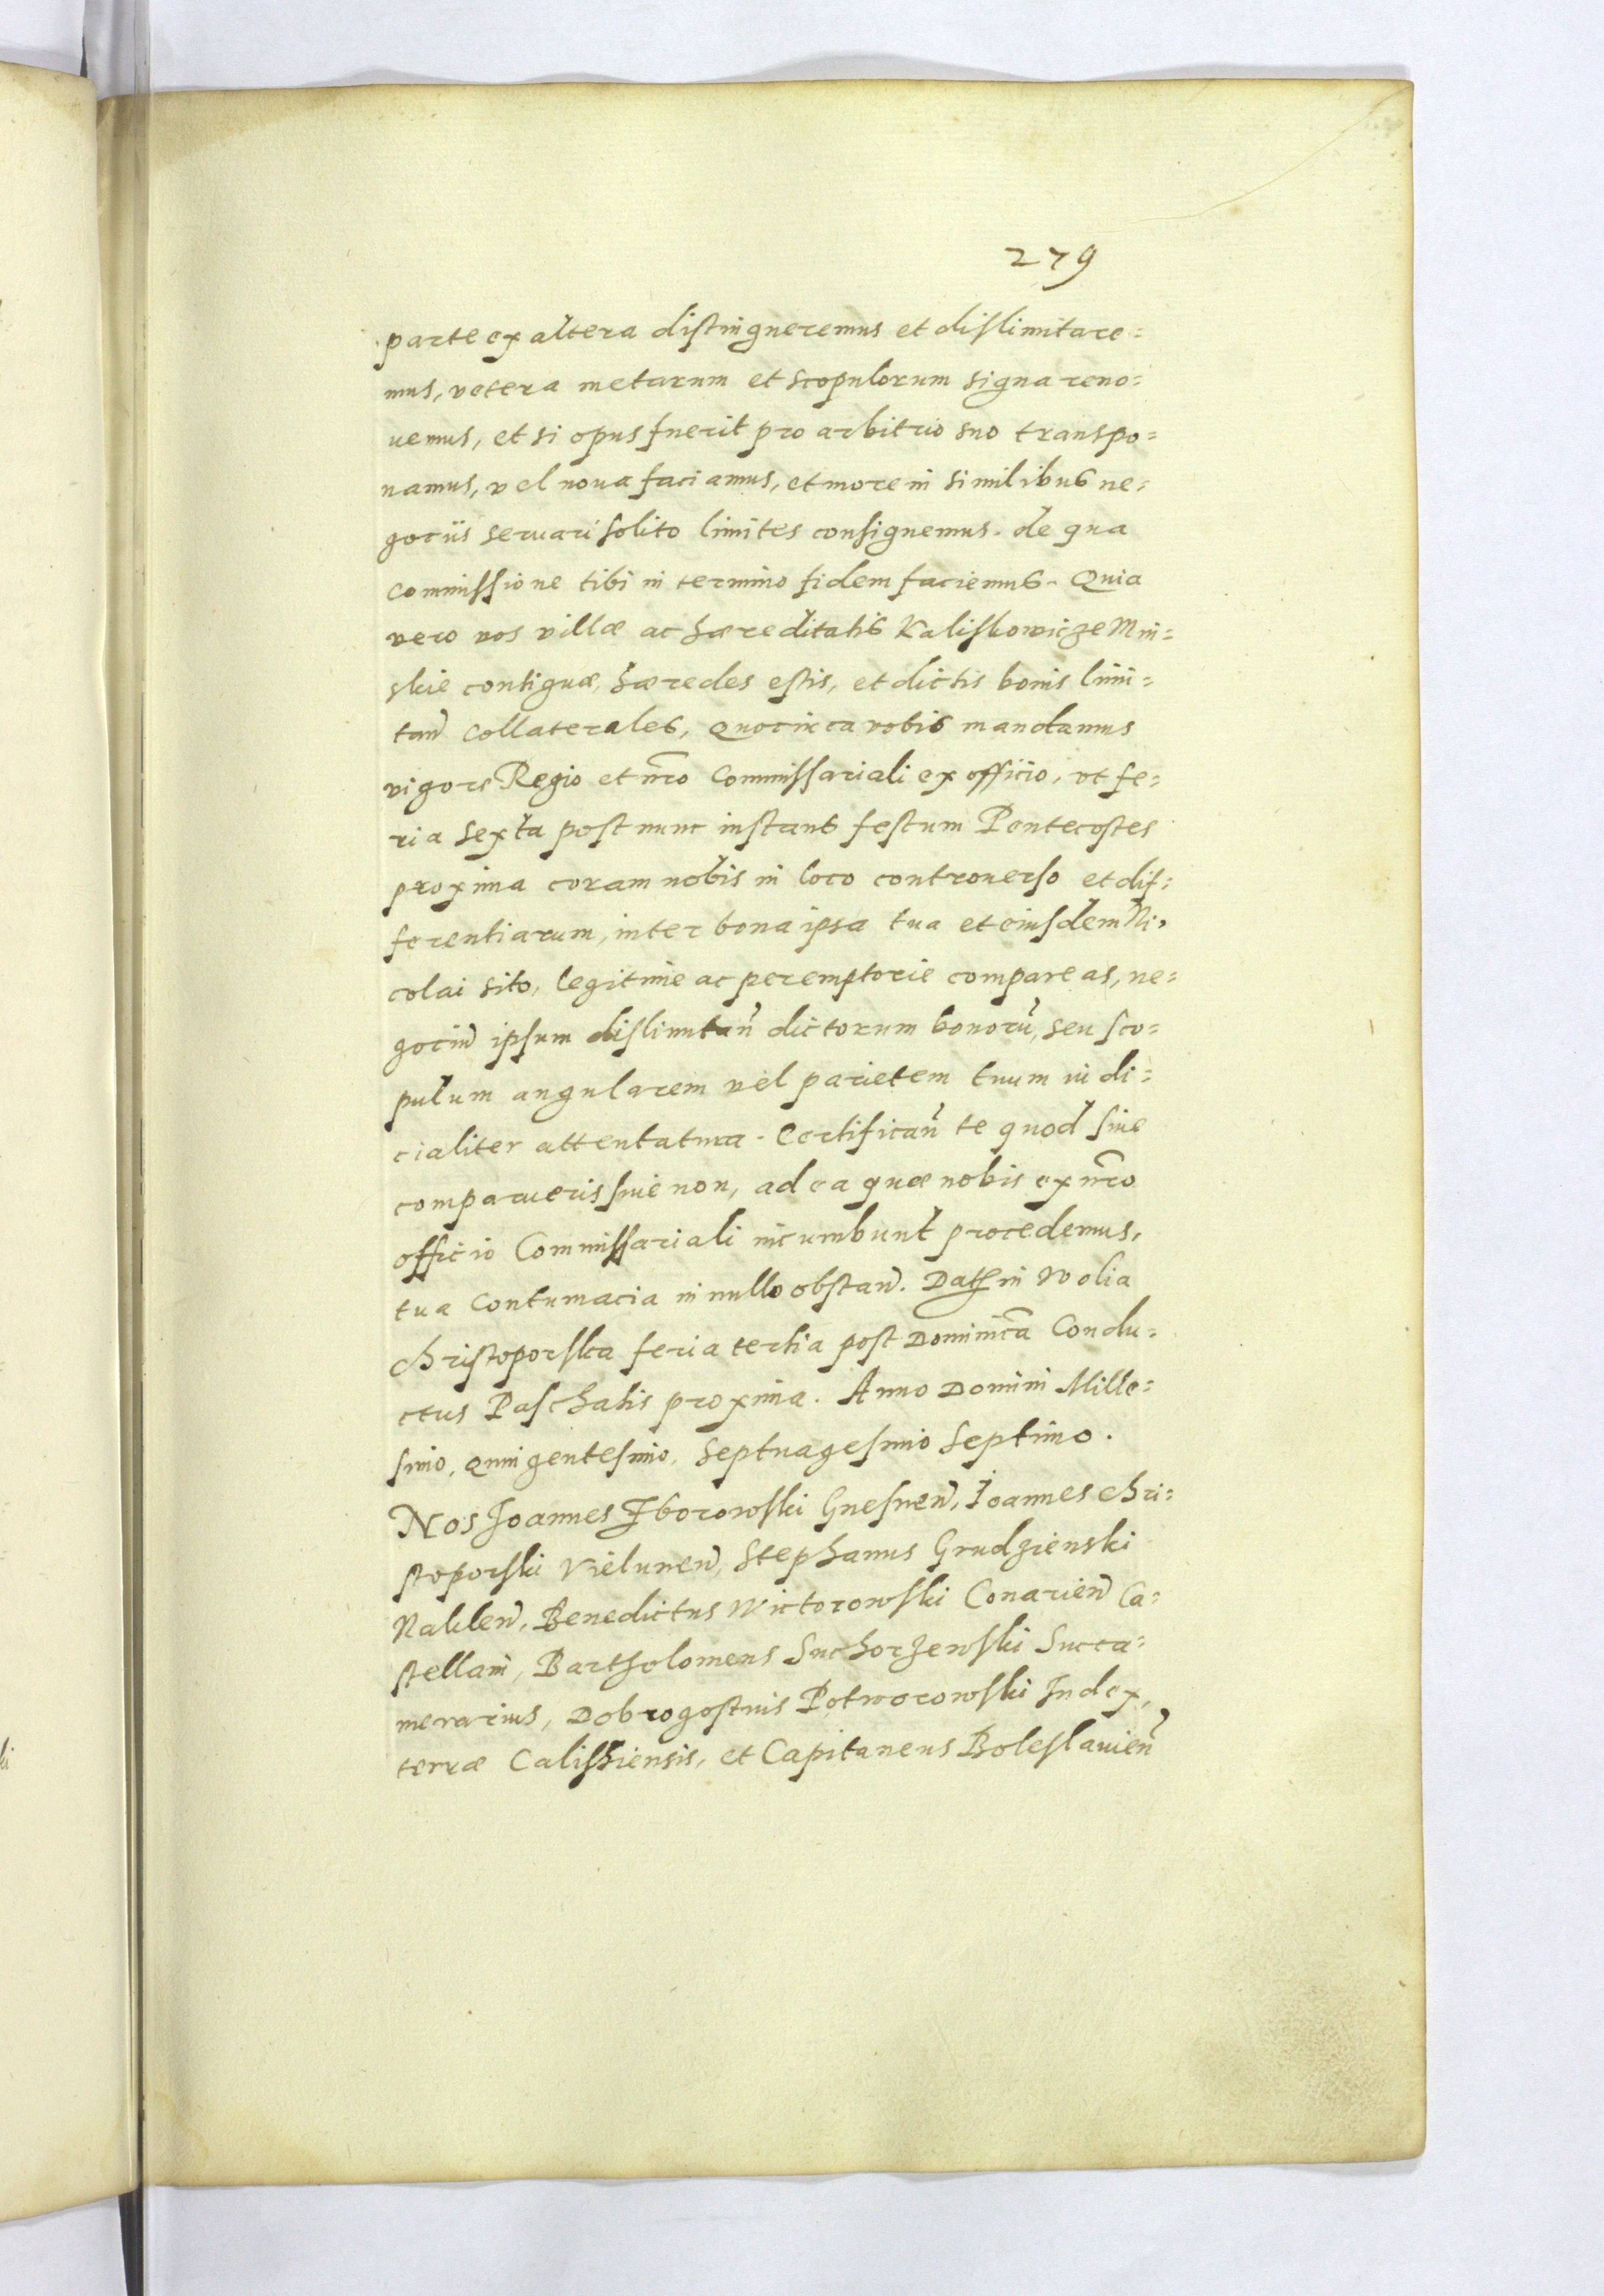 279
parte ex altera distingueremus et dislimitare=
mus, vetera metarum et scopulorum signa reno=
uemus, et si opus fuerit pro arbitrio suo transpo=
namus, vel noua faciamus, et more in similibus ne=
gociis seruari solito limites consignemus. de qua
commissione tibi in termino fidem faciemus. Quia
vero vos villæ ac hæreditatis Kaliskowicze Min=
skie contiguæ, hæredes estis, et dictis bonis limi=
tan̄ collaterales, quocirca vobis mandamus
vigore Regio et nr̄o Commissariali ex officio, vt fe=
ria sexta post nunc instans festum Pentecostes
proxima coram nobis in loco controuerso et dif=
ferentiarum, inter bona ipsa tua et eiusdem Ni=
colai sito, legitime ac peremptorie compareas, ne=
gociū ipsum dislimitan̄ dictorum bonorū, seu sco=
pulum angularem vel parietem tuum iudi=
cialiter attentatura. Certifican̄ te quod siue
comparueris siue non, ad ea quæ nobis ex nr̄o
officio Commissariali incumbunt procedemus,
tua contumacia in nullo obstan̄. Dat in Wolia
Christoporska feria tertia post Dominicā Condu=
ctus Paschalis proxima. Anno Domini Mille=
simo, quingentesimo, septuagesimo septimo.
Nos Joannes Zborowski Gnesnen̄, Joannes Chri=
stoporski Vielunen̄, Stephanus Grudzienski
Naklen̄, Benedictus Wictorowski Conarien̄ Ca=
stellani, Bartholomeus Suchorzewski Succa=
merarius, Dobrogostius Potworowski Iudex,
terræ Calissiensis, et Capitaneus Boleslauien̄